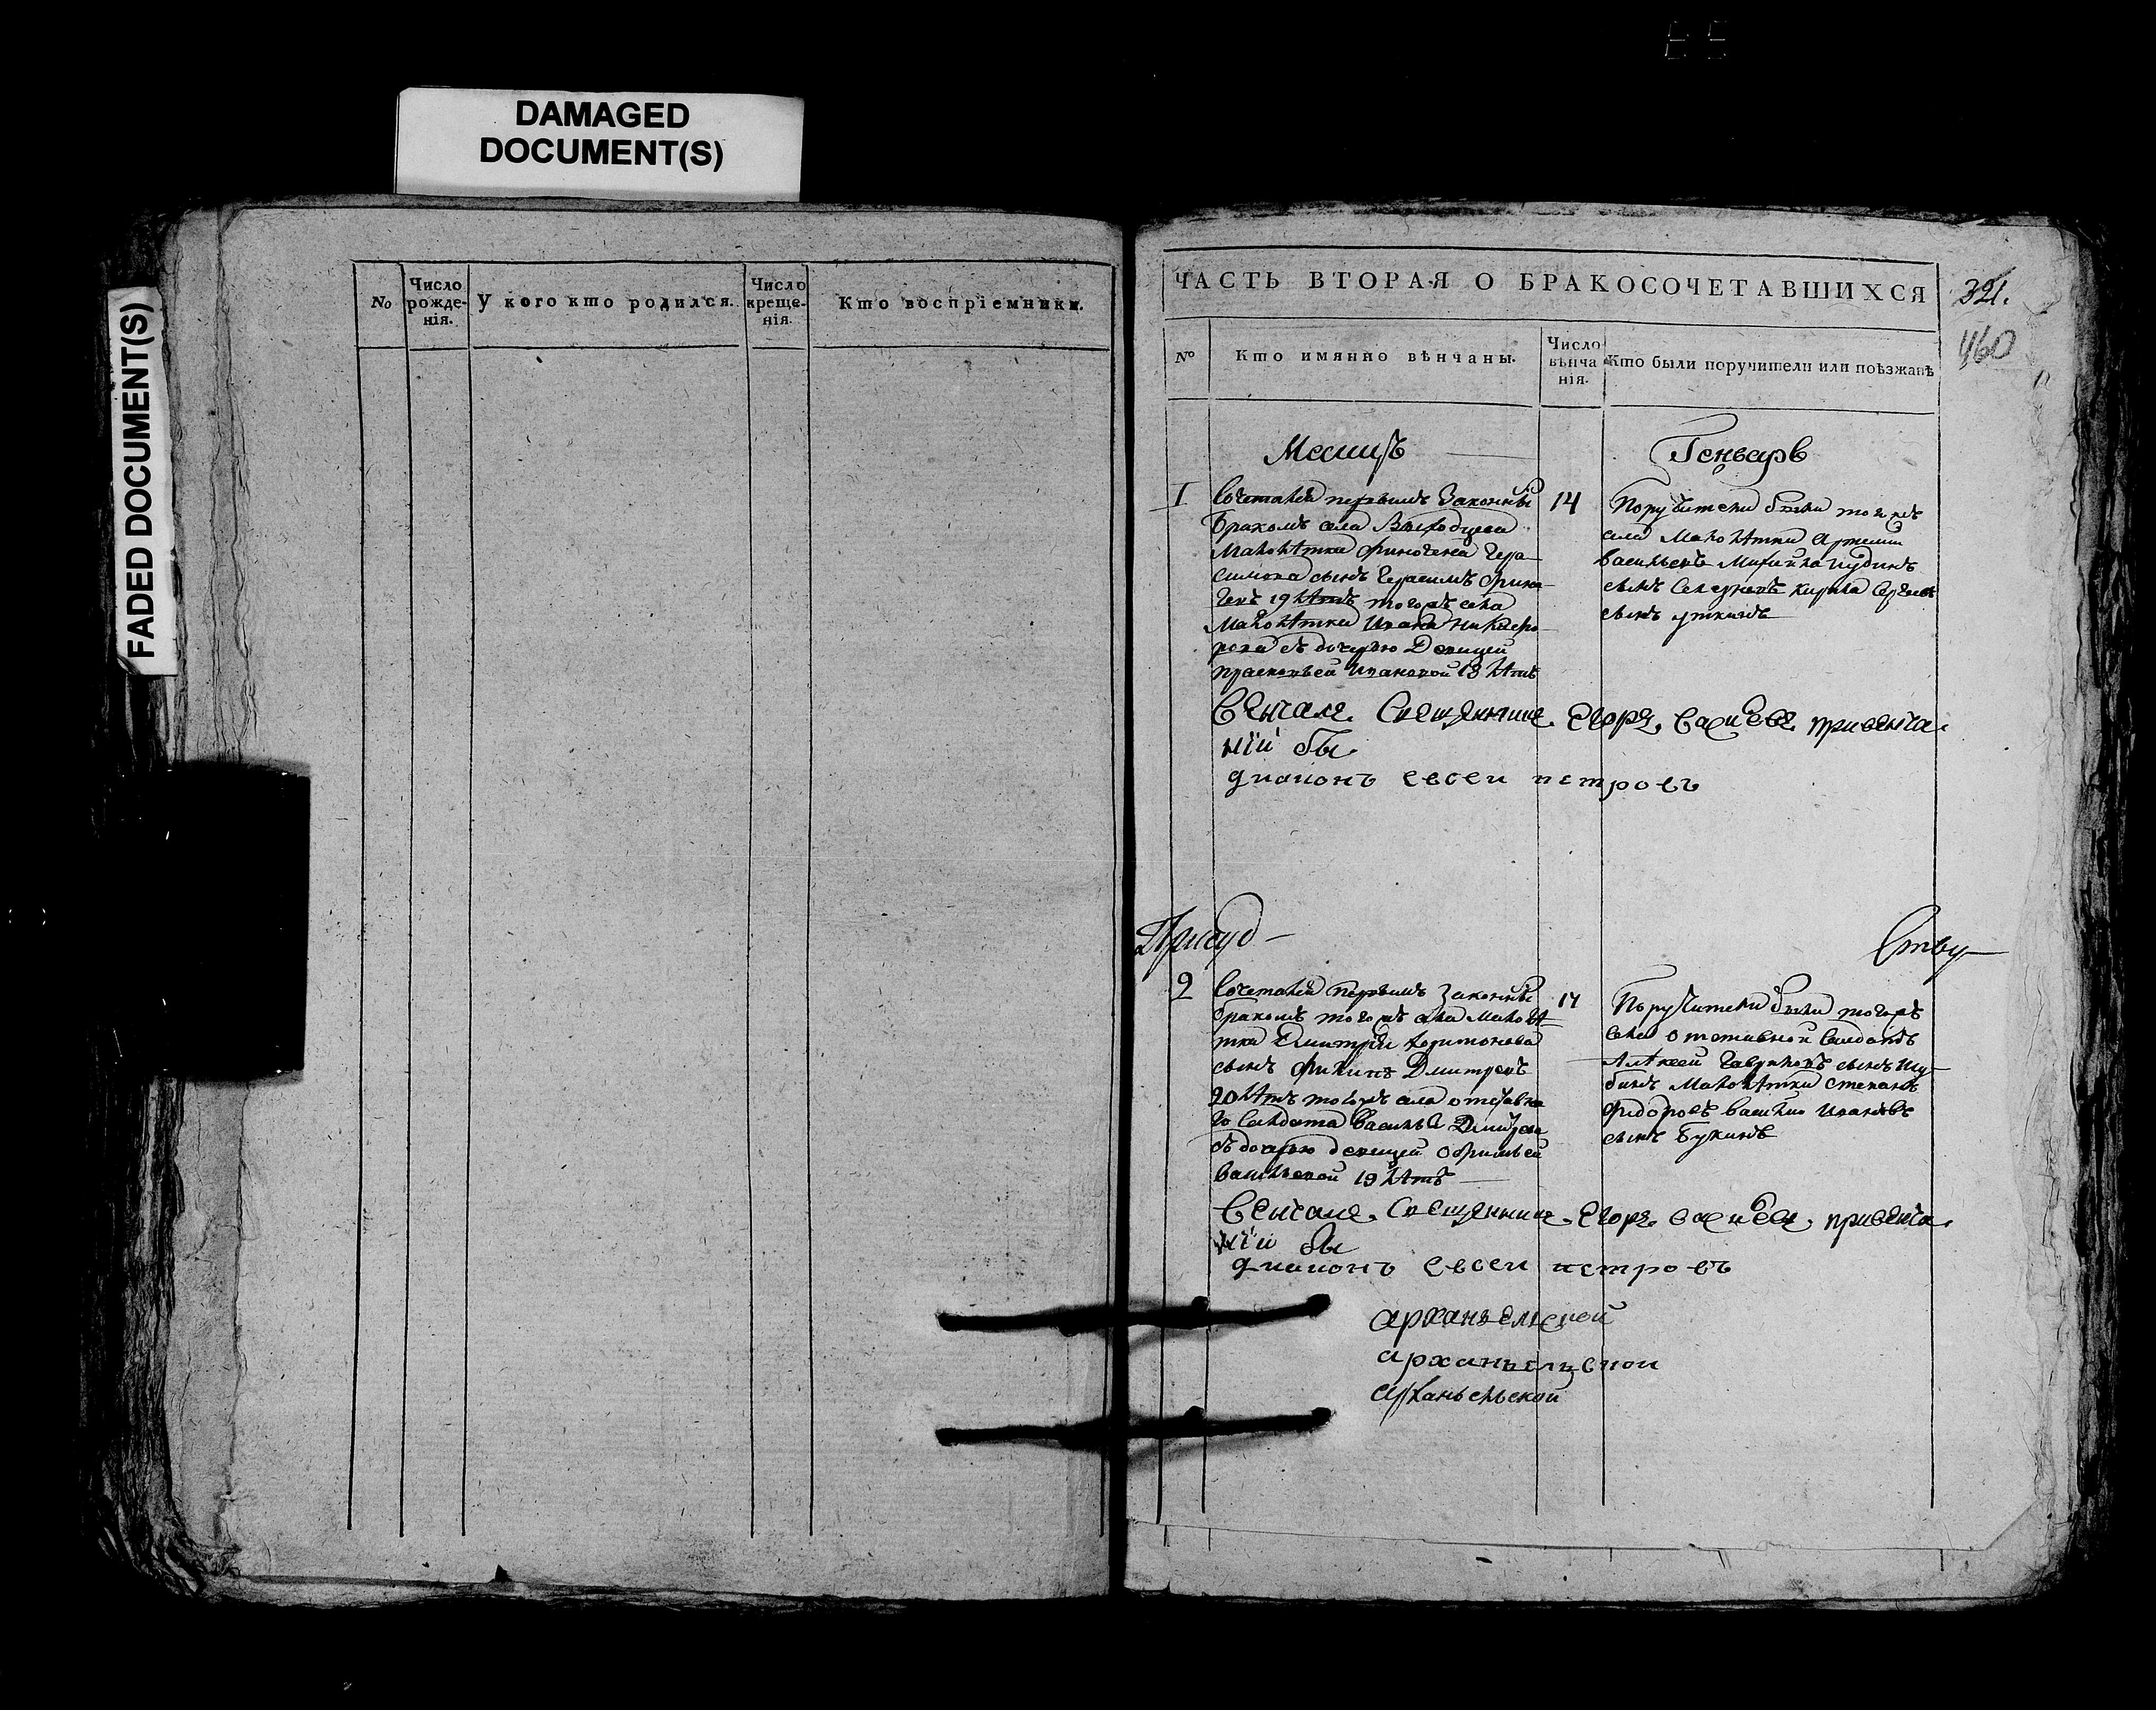 DAMAGED
DOCUMENT(S)
FADED DOCUMENT(S)
№
Число рожде-нія.
У кого кто родился.
Число креще-нія.
Кто воспріемники.
ЧАСТЬ ВТОРАЯ О БРАКОСОЧЕТАВШИХСЯ
321.
460
№
Кто имянно вѣнчаны.
Число вѣнча нія.
Кто были поручители или поѣзжанѣ
Месицъ
Геньварь
1
Сочетался первымъ Законны
бракомъ села
Малолѣтки Финогена Гера
симова сынъ Герасимъ Фино
генъ 19 лѣтъ тогожъ села
Малолѣтки Ивана Никифо
рова съ дочерью Девицей
прасковьей Ивановой 18 лѣтъ
14
Поручители были тогожъ
села Малолѣтки Артемий
Васильевъ
сынъ кирила Сергеевъ
сынъ уткинъ
Венчалъ Священникъ Егоръ Василевъ привенча
нїи бы
диаконъ евсеи петровъ
Присуд
Ству
2
Сочетался первымъ Законны
бракомъ тогожъ села Малолѣ
тки Дмитрия Харитонова
сынъ Филипъ Дмитревъ
20 лѣтъ тогожъ села отставна
го Салдата Василья
съ дочерью девицей
Васильевой 19 лѣтъ
14
Поручители были тогожъ
села отставной Салдатъ
Алѣксей Гавриловъ сынъ Шу
бинъ Малолѣтки степанъ
Федоровъ Василий Ивановъ
сынъ Букинъ
Венчалъ Священникъ Егоръ Василевъ привенча
нїи бы
диаконъ евсеи петровъ
арханьельской
арханьельской
арханьельской